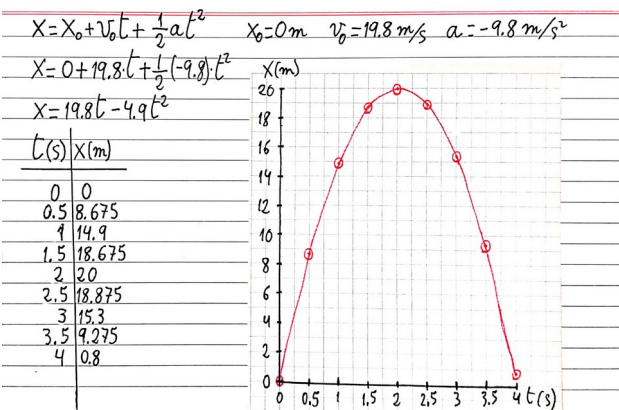 x=x₀+v₀t+½at² x₀=0m v₀=19.8 m/s a=-9.8 m/s²
x=0+19.8·t+½(-9.8)·t²
x=19.8t-4.9t²
t(s) x(m)
0 0
0.5 8.675
1 14.9
1.5 18.675
2 20
2.5 18.875
3 15.3
3.5 9.275
4 0.8
x(m)
20
18
16
14
12
10
8
6
4
2
0
0 0.5 1 1,5 2 2,5 3 3,5 4 t(s)